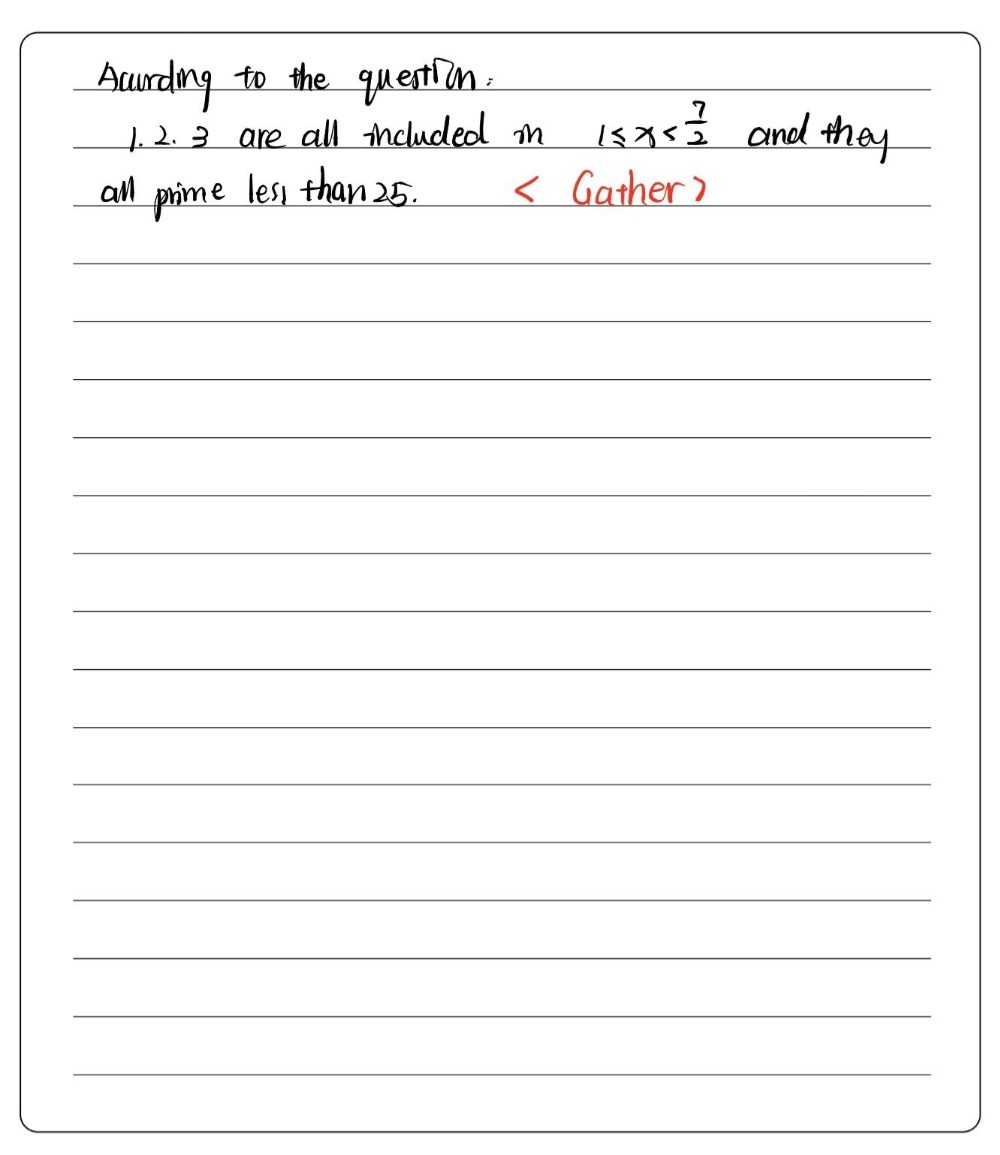 According to the question:
1. 2. 3 are all included in 1 ≤ x < 7/2 and they
all prime less than 25. < Gather >